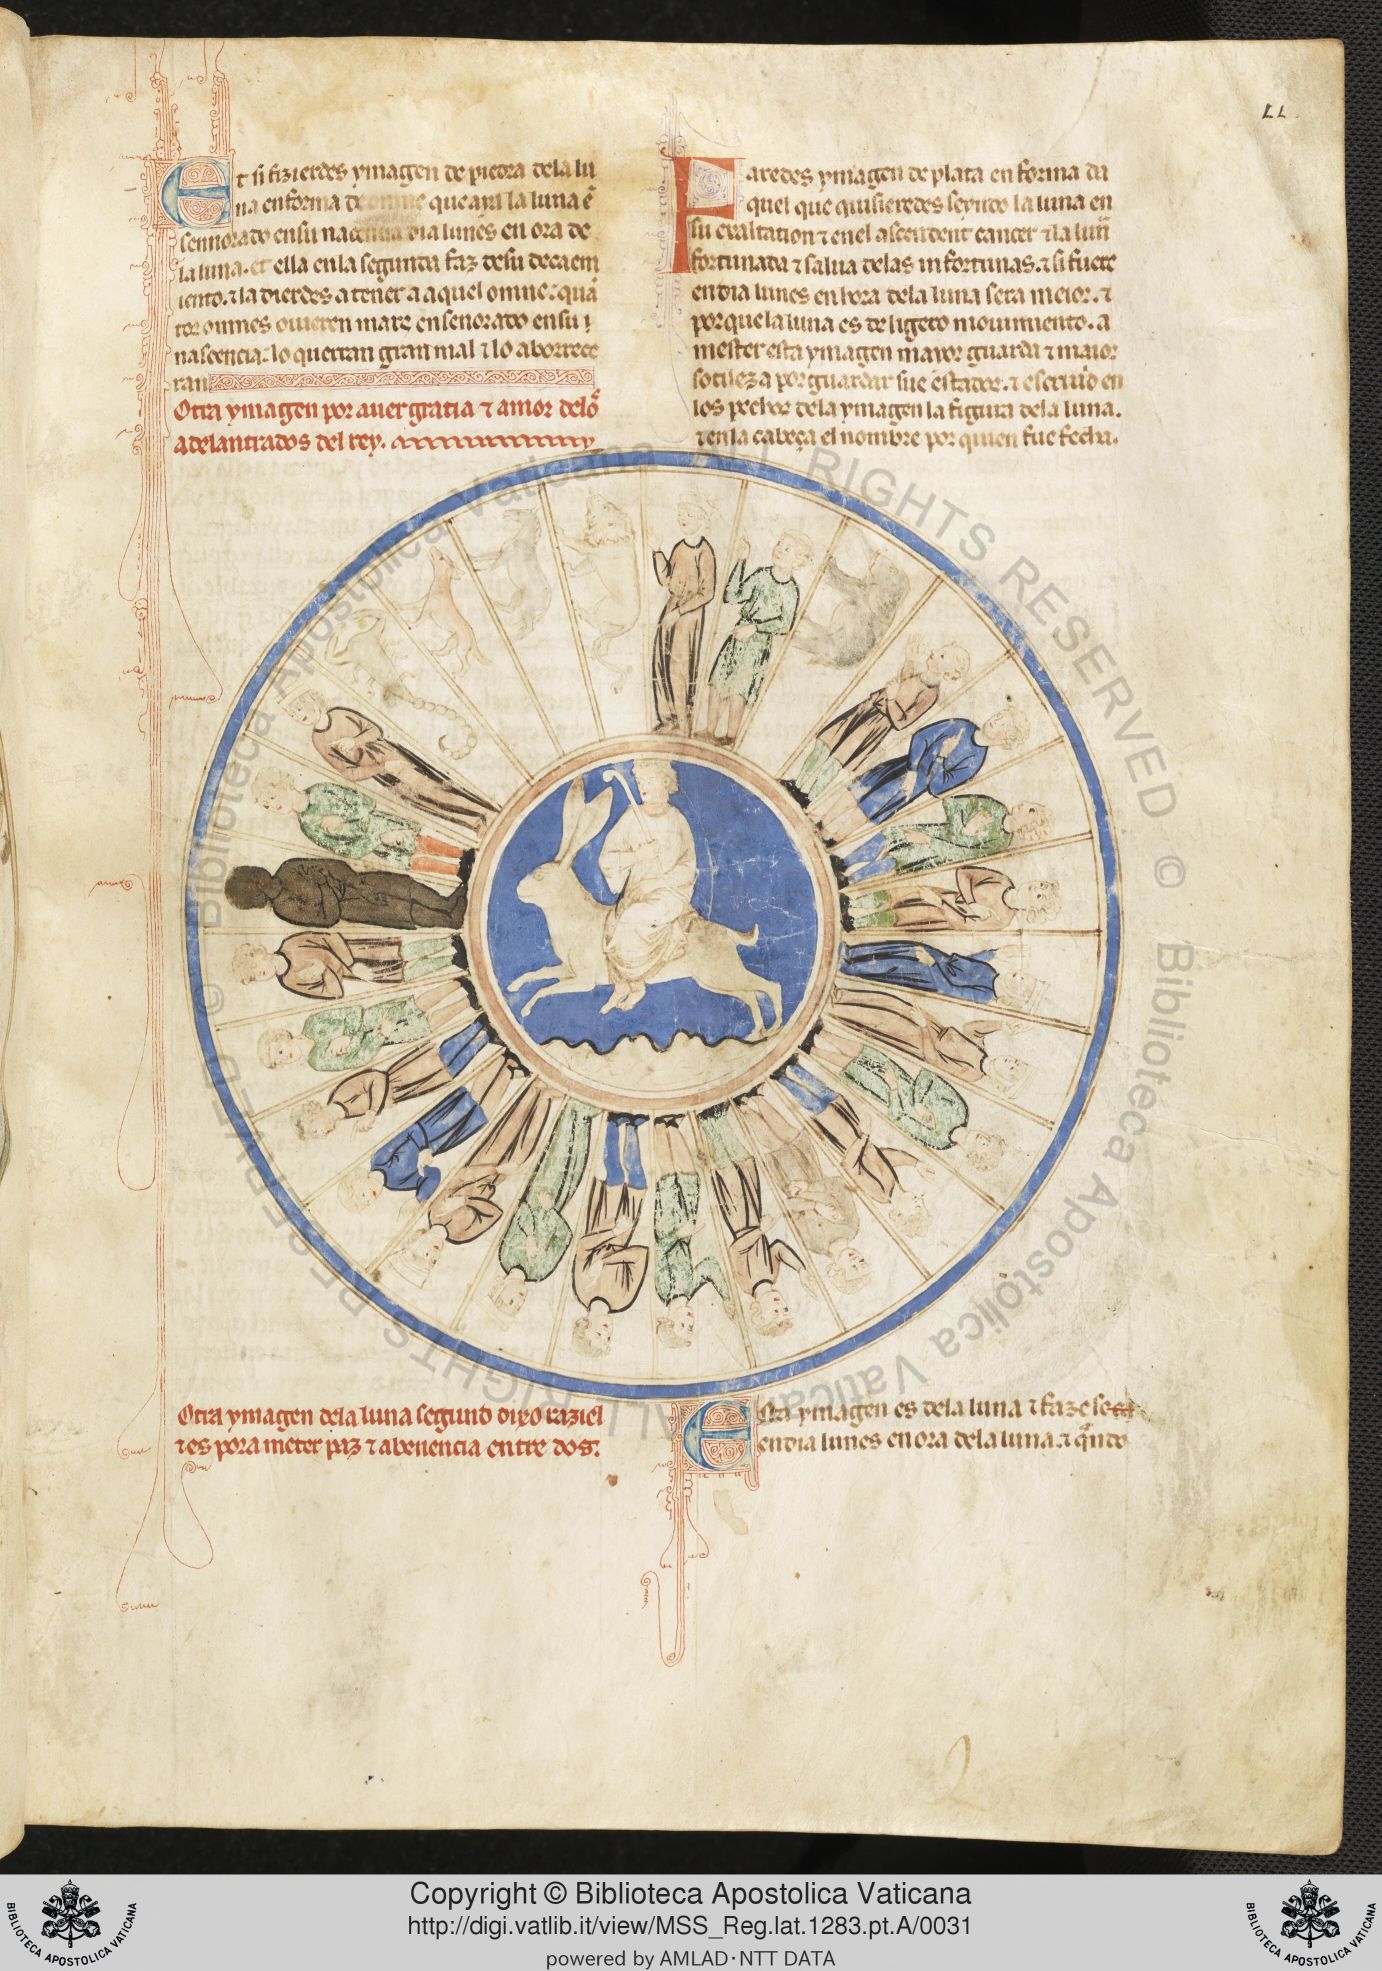 LL
Et si fizierdes ymagen de piedra dela lu
na en forma de omne que aya la luna en
sennorado en su nacencia dia lunes en ora de
la luna. et ella en la segunda faz de su decaem
iento. ⁊ la dierdes a tener a aquel omne: quan
tos omnes ouieren mars ensenorado en su
nascencia: lo querran gran mal ⁊ lo aborrece
ran
Otra ymagen por auer gratia ⁊ amor delos
adelantrados del rey.
Faredes ymagen de plata en forma da
quel que quisieredes seyendo la luna en
su exaltation ⁊ en el ascendent cancer ⁊ la luna
fortunada ⁊ salua delas infortunas. ⁊ si fuere
en dia lunes en hora dela luna sera meior. ⁊
por que la luna es de ligero mouimiento. a
mester esta ymagen mayor guarda ⁊ maior
sotileza por guardar sue estados. ⁊ escriuid en
los pechos dela ymagen la figura dela luna.
⁊ en la cabeça el nombre por quien fue fecha.
Otra ymagen dela luna segund dixo raziel
⁊ es pora meter paz ⁊ abenencia entre dos:
Esta ymagen es dela luna ⁊ faze se
en dia lunes en ora dela luna. ⁊ quando
© Biblioteca Apostolica Vaticana ALL RIGHTS RESERVED © Biblioteca Apostolica Vaticana ALL RIGHTS RESERVED
BIBLIOTECA APOSTOLICA VATICANA
Copyright © Biblioteca Apostolica Vaticana
http://digi.vatlib.it/view/MSS_Reg.lat.1283.pt.A/0031
powered by AMLAD·NTT DATA
BIBLIOTECA APOSTOLICA VATICANA